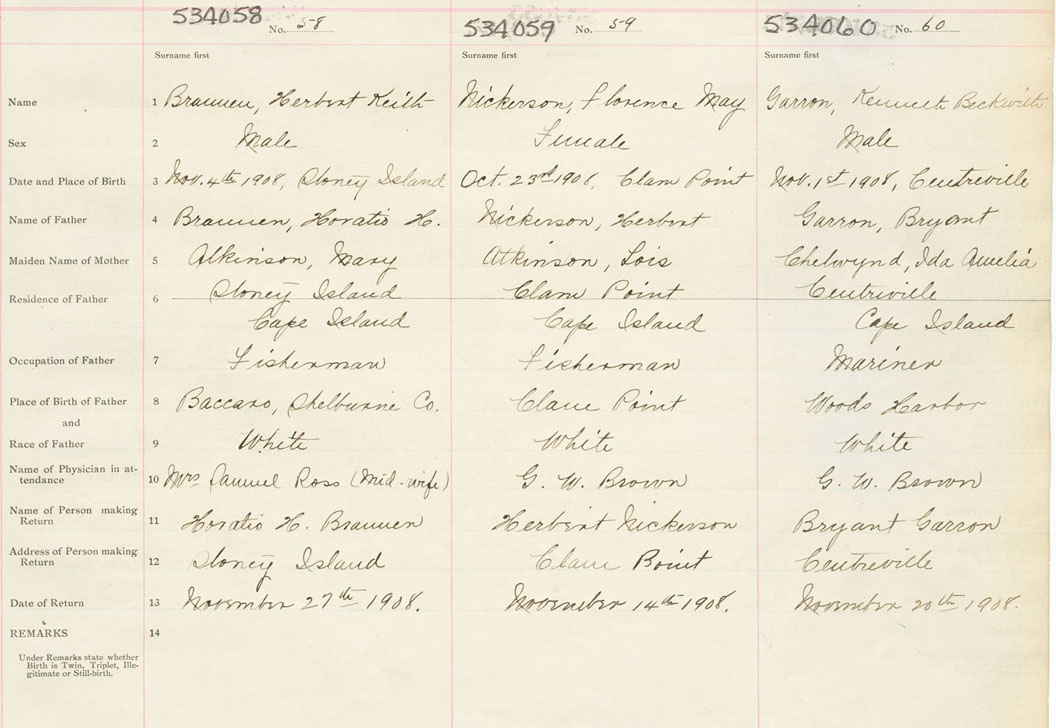 534058 No. 58 534059 No. 59 534060 No. 60
Surname first Surname first Surname first
Name 1 Brannen, Herbert Keith Nickerson, Florence May Garron, Kenneth Beckwith
Sex 2 Male Female Male
Date and Place of Birth 3 Nov. 4th 1908, Stoney Island Oct. 23rd 1908, Clam Point Nov. 1st 1908, Centreville
Name of Father 4 Brannen, Horatio H. Nickerson, Herbert Garron, Bryant
Maiden Name of Mother 5 Atkinson, Mary Atkinson, Lois Chetwynd, Ida Amelia
Residence of Father 6 Stoney Island Clam Point Centreville
Cape Island Cape Island Cape Island
Occupation of Father 7 Fisherman Fisherman Mariner
Place of Birth of Father 8 Baccaro, Shelburne Co. Clam Point Woods Harbor
and
Race of Father 9 White White White
Name of Physician in at-
tendance 10 Mrs Samuel Ross (Mid-wife) G. W. Brown G. W. Brown
Name of Person making
Return 11 Horatio H. Brannen Herbert Nickerson Bryant Garron
Address of Person making
Return 12 Stoney Island Clam Point Centreville
Date of Return 13 November 27th 1908. November 14th 1908. November 20th 1908.
REMARKS 14
Under Remarks state whether
Birth is Twin, Triplet, Ille-
gitimate or Still-birth.